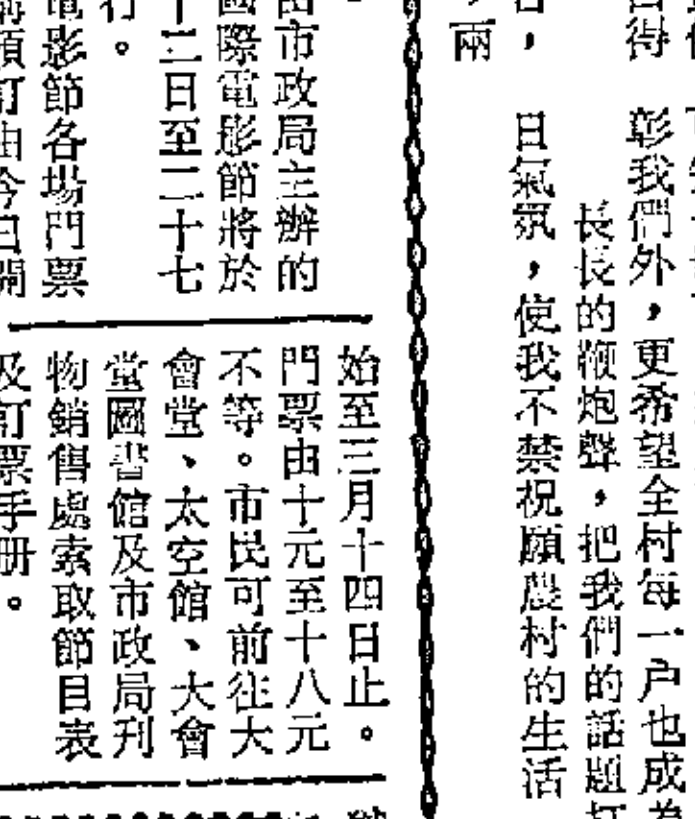 彰我們外，更希望全村每一户也成
長長的鞭炮聲，把我們的話題打
日氣氛，使我不禁祝願農村的生活
兩
由市政局主辦的
國際電影節將於
十二日至二十七
行。
電影節各場門票
預訂由今日開
始至三月十四日止。
門票由十元至十八元
不等。市民可前往大
會堂、太空館、大會
堂圖書館及市政局刊
物銷售處索取節目表
及訂票手册。